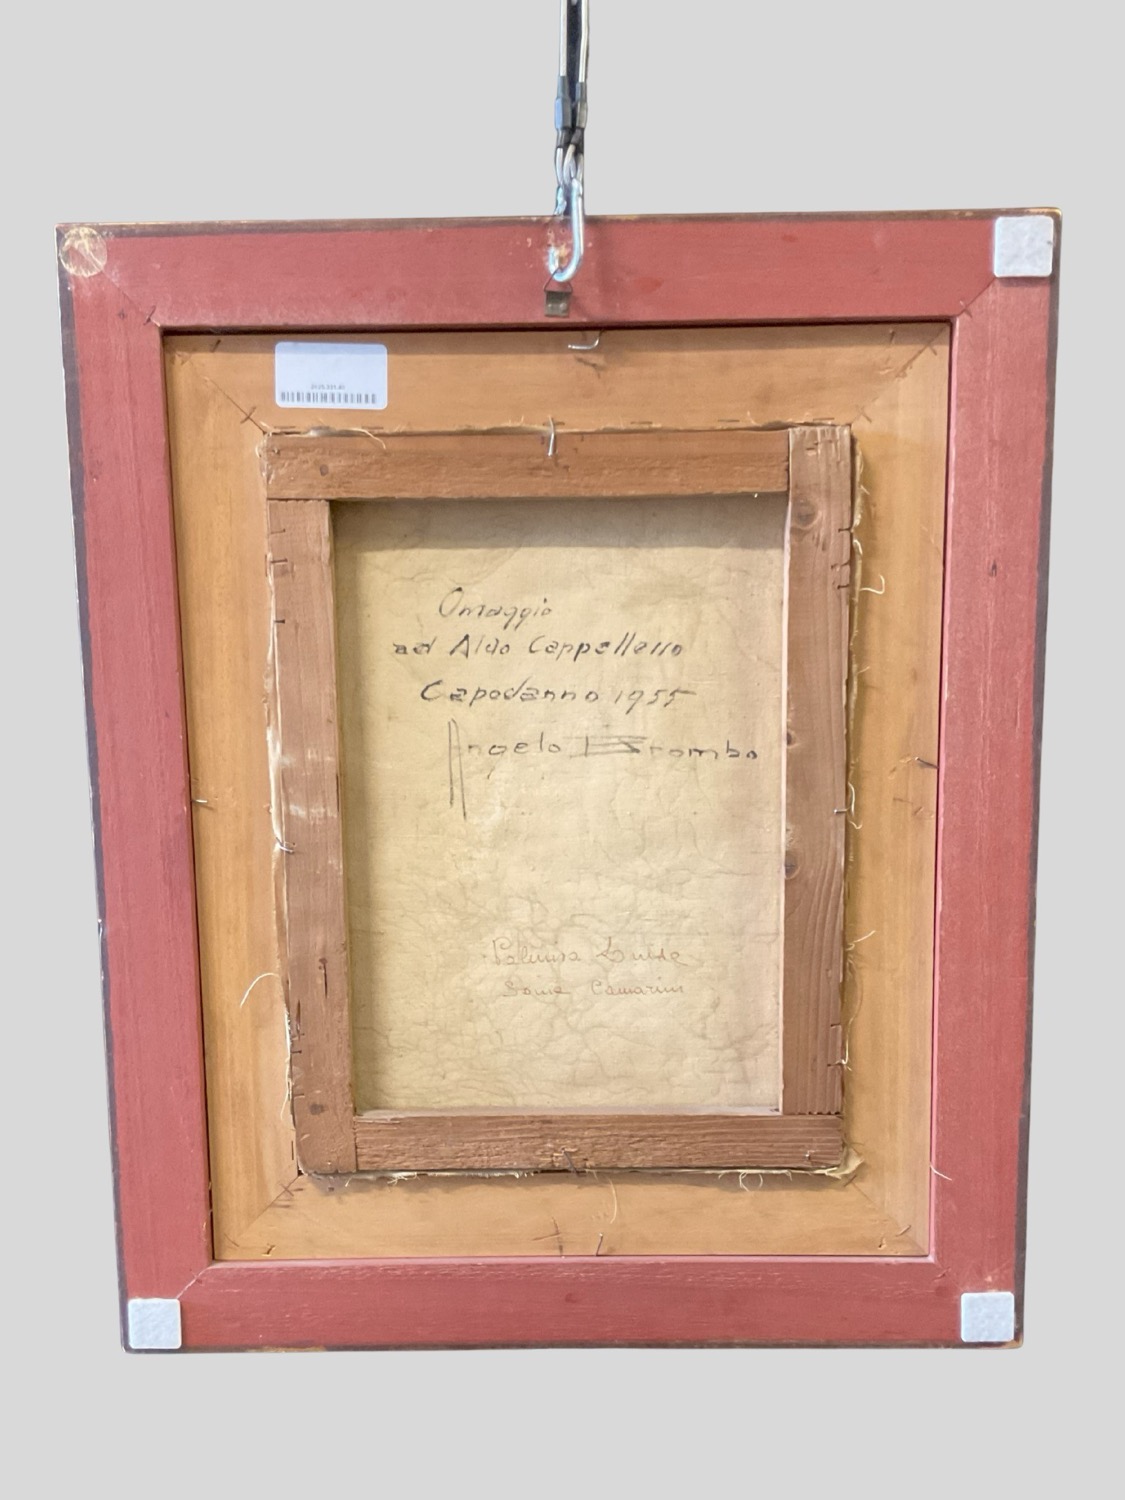 Omaggio
ad Aldo Cappellesso
Capodanno 1955
Angelo Brombo
Sonia Camarini